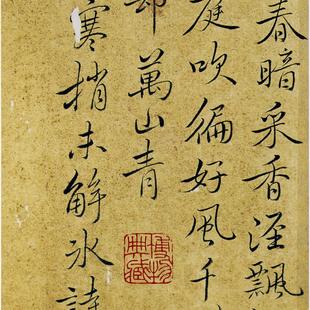 春暗采香涇飄
庭吹徧好風千
萬山青
寒梢未解冰詩